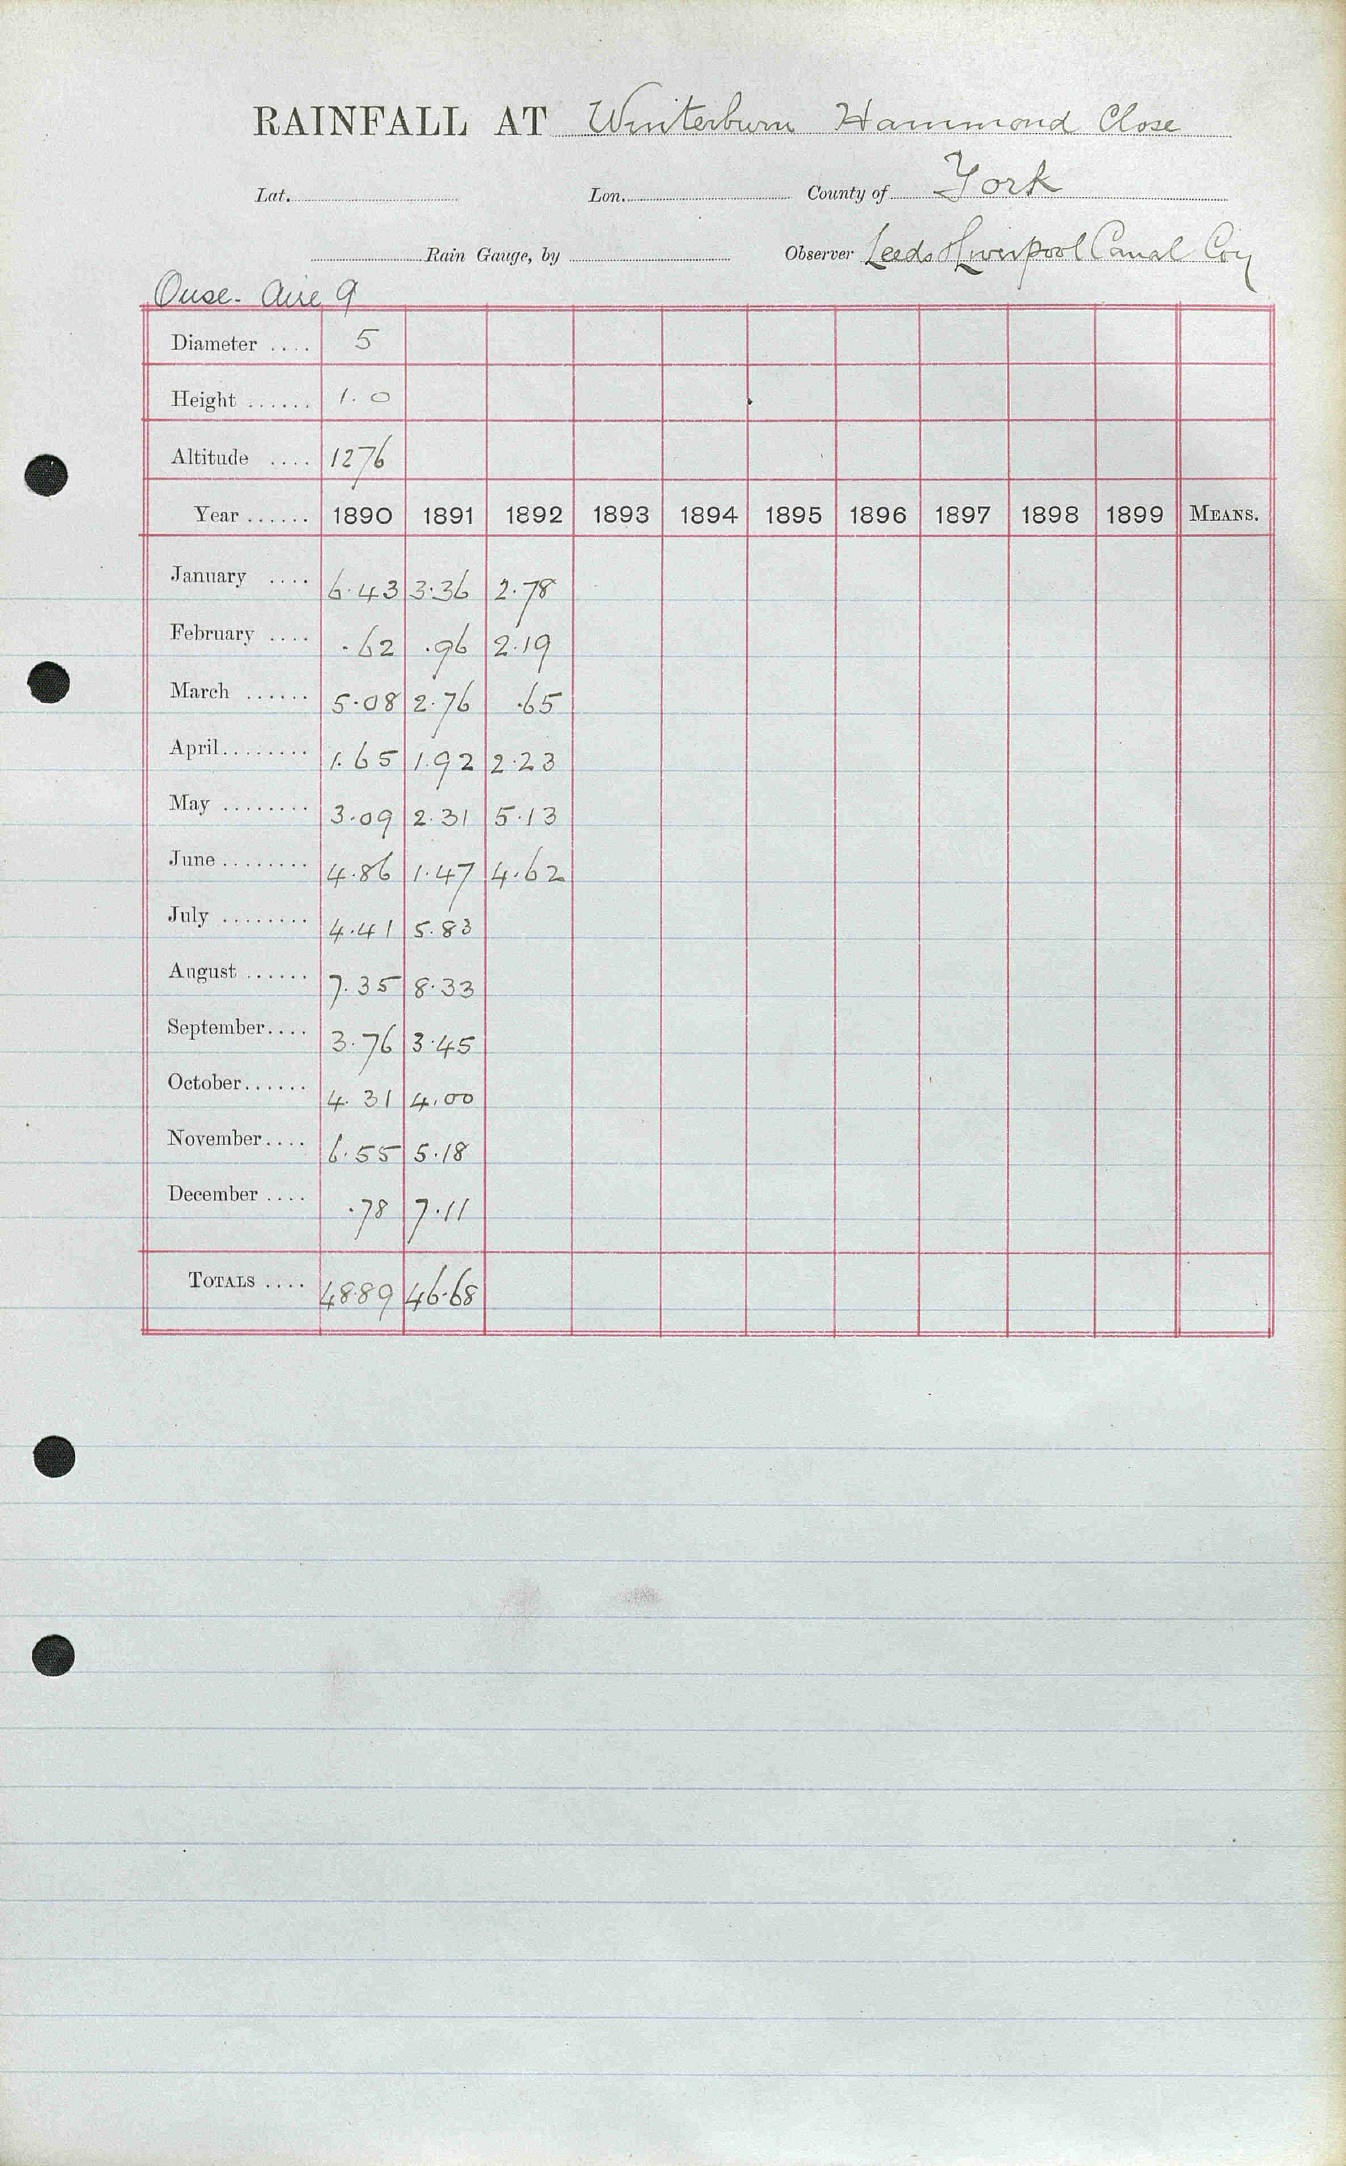 RAINFALL AT Winterburn Hammond Close
Lat. Lon. County of York
Rain Gauge, by Observer Leeds & Liverpool Canal Coy
Ouse - Aire 9
Diameter .... 5
Height ...... 1.0
Altitude .... 1276
Year ...... 1890 1891 1892 1893 1894 1895 1896 1897 1898 1899 MEANS.
January .... 6.43 3.36 2.78
February .... .62 .96 2.19
March ...... 5.08 2.76 .65
April........ 1.65 1.92 2.23
May ........ 3.09 2.31 5.13
June ........ 4.86 1.47 4.62
July ........ 4.41 5.83
August ...... 7.35 8.33
September.... 3.76 3.45
October...... 4.31 4.00
November.... 6.55 5.18
December .... .78 7.11
TOTALS .... 48.89 46.68